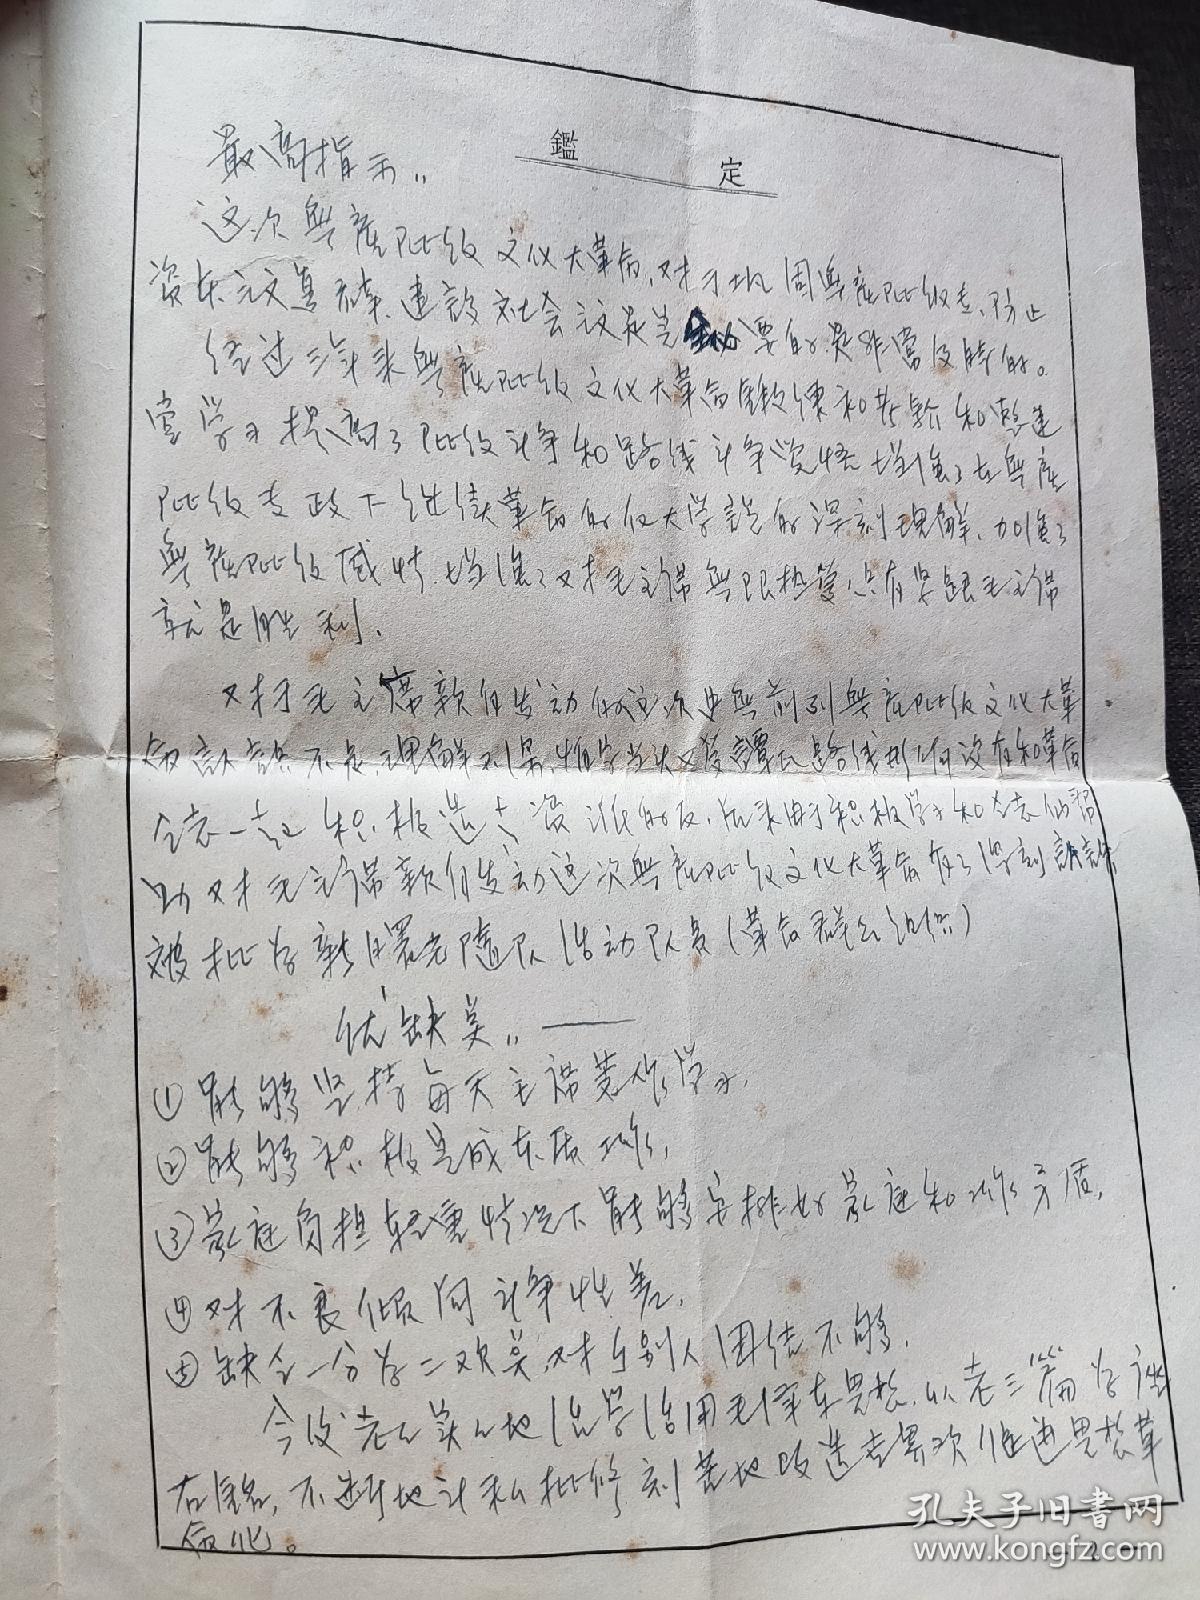 鑑 定
最高指示：
这次無産阶级文化大革命，对于巩固無産阶级专，防止
资本主义复辟，建設社会主义是完全必要的，是非常及時的。
经过三年来無産阶级文化大革命鍛煉和
学习提高了阶级斗争和路线斗争觉悟，增進了在無産
阶级专政下继续革命的伟大学説的深刻理解，加進了
無産阶级感情，增進了对毛主席無限热爱，只有紧跟毛主席
就是胜利，
对于毛主席親自发动的这次史無前列無産阶级文化大革
命認識不足，理解不深，路线影响没有和革命
仝志一起积极造反，后来由于积极学习和仝志们帮
助对毛主席親自发动这次無産阶级文化大革命有了深刻認識
被批为新曙光随队活动队员（革命群众组织）
优缺点：——
①能够坚持每天主席著作学习，
②能够积极完成本质工作，
③家庭负担较重情况下能够安排好家庭和工作矛盾，
④对不良倾向斗争性差，
⑤缺仝一分为二观点，对于别人团结不够，
今后老老实实地活学活用毛泽东思想，以老三篇为座
右銘，不断地斗私批修刻苦地改造世界观促进思想革
命化。
孔夫子旧书网
www.kongfz.com